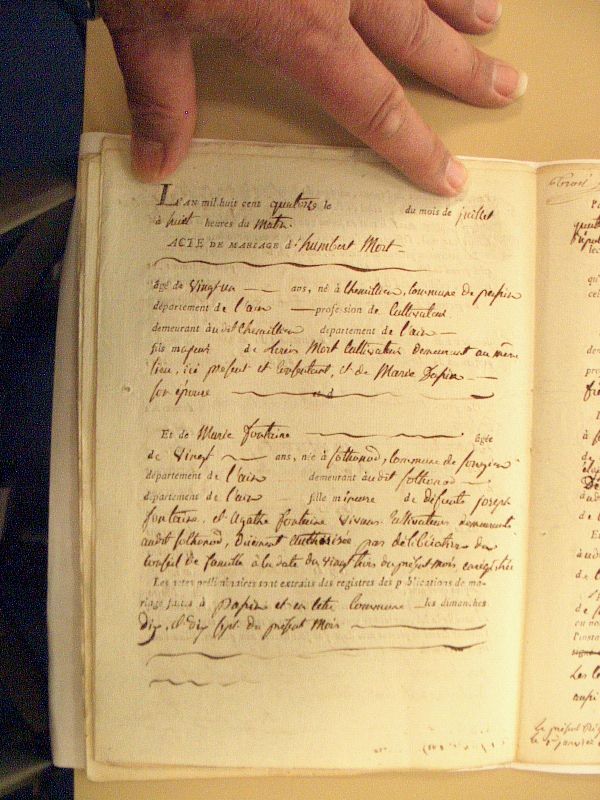 L'AN mil huit cent quatorze le du mois de juillet
à huit heures du Matin.
ACTE DE MARIAGE d'humbert Mort
âgé de Vingt un ans, né à Chemillieu, Commune de
département de l'ain profession de Cultivateur
demeurant audit Chemillieu département de l'ain
fils majeur de Mort Cultivateur demeurant au même
lieu, ici présent et Consentant, et de Marie
son épouse et d
Et de Marie fontaine âgée
de Vingt ans, née à sothonod, Commune de songieu
département de l'ain demeurant audit sothonod
département de l'ain fille mineure de défunts joseph
fontaine, et Agathe fontaine Vivans Cultivateurs demeurants
audit sothonod, Duement authorisée par délibération du
Conseil de famille à la date du vingt du présent mois enregistrée
Les actes préliminaires sont extraits des registres des publications de ma-
riage faites à et en cette Commune les dimanches
dix, et dix sept du présent Mois